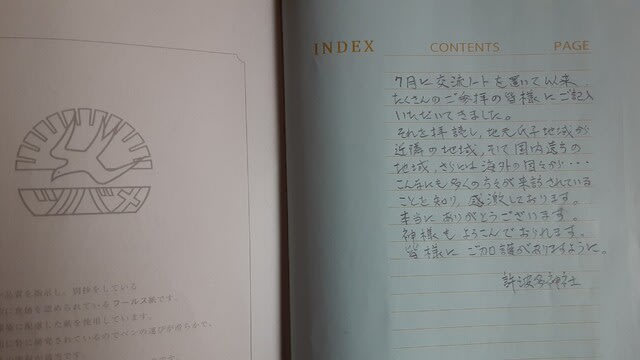 ツバメ
品質を指示し、別抄をしている
に真価を認められているフールス紙です。
に配慮した紙を使用しています。
に特に研究されているのでペンの運びが滑らかで、
INDEX CONTENTS PAGE
7月に交流ノートを置いて以来
たくさんのご参拝の皆様にご記入
いただいてきました。
それを拝読し、地元氏子地域から
近隣の地域、そして国内遠方の
地域、さらには海外の国々から・・・
こんなにも多くの方々が来訪されている
ことを知り、感激しております。
本当にありがとうございます。
神様もよろこんでおられます。
皆様にご加護がありますように。
許波多神社